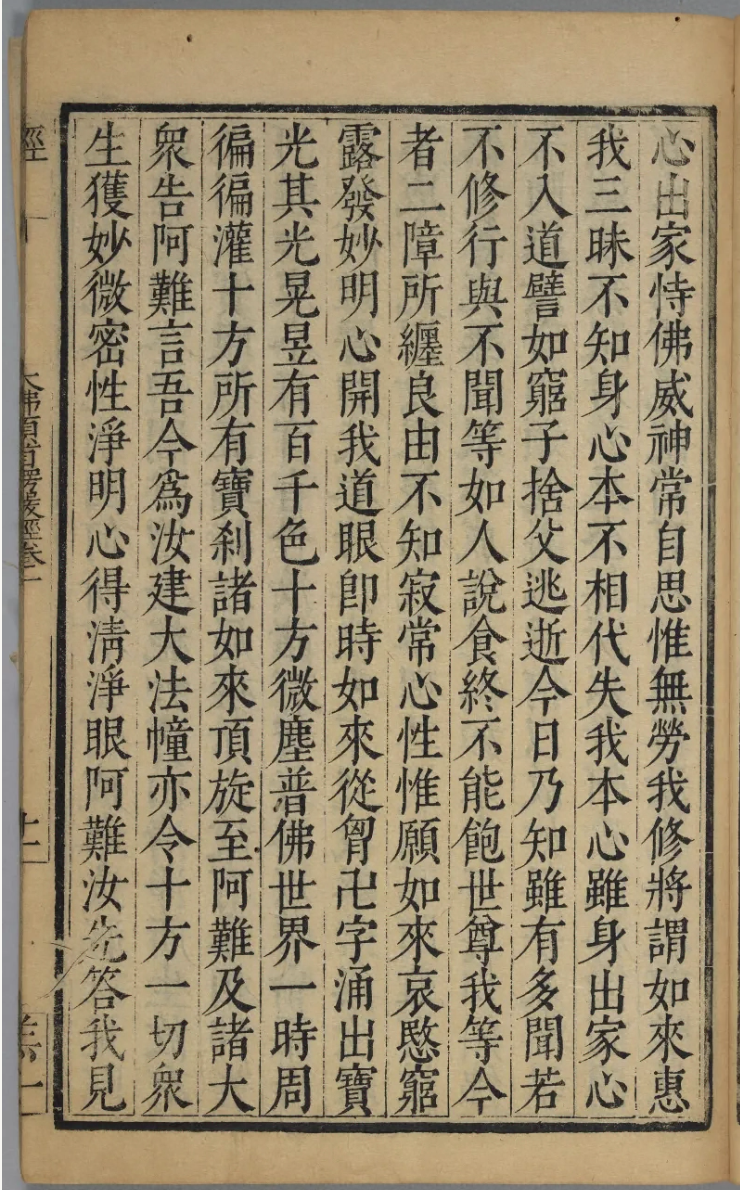 心出家恃佛威神常自思惟無勞我修將謂如來惠
我三昧不知身心本不相代失我本心雖身出家心
不入道譬如窮子捨父逃逝今日乃知雖有多聞若
不修行與不聞等如人說食終不能飽世尊我等今
者二障所纏良由不知寂常心性惟願如來哀愍窮
露發妙明心開我道眼卽時如來從胷卍字涌出寶
光其光晃昱有百千色十方微塵普佛世界一時周
徧徧灌十方所有寶刹諸如來頂旋至阿難及諸大
衆告阿難言吾今爲汝建大法幢亦令十方一切衆
生獲妙微密性淨明心得淸淨眼阿難汝先答我見
經
大佛頂首楞嚴經卷一